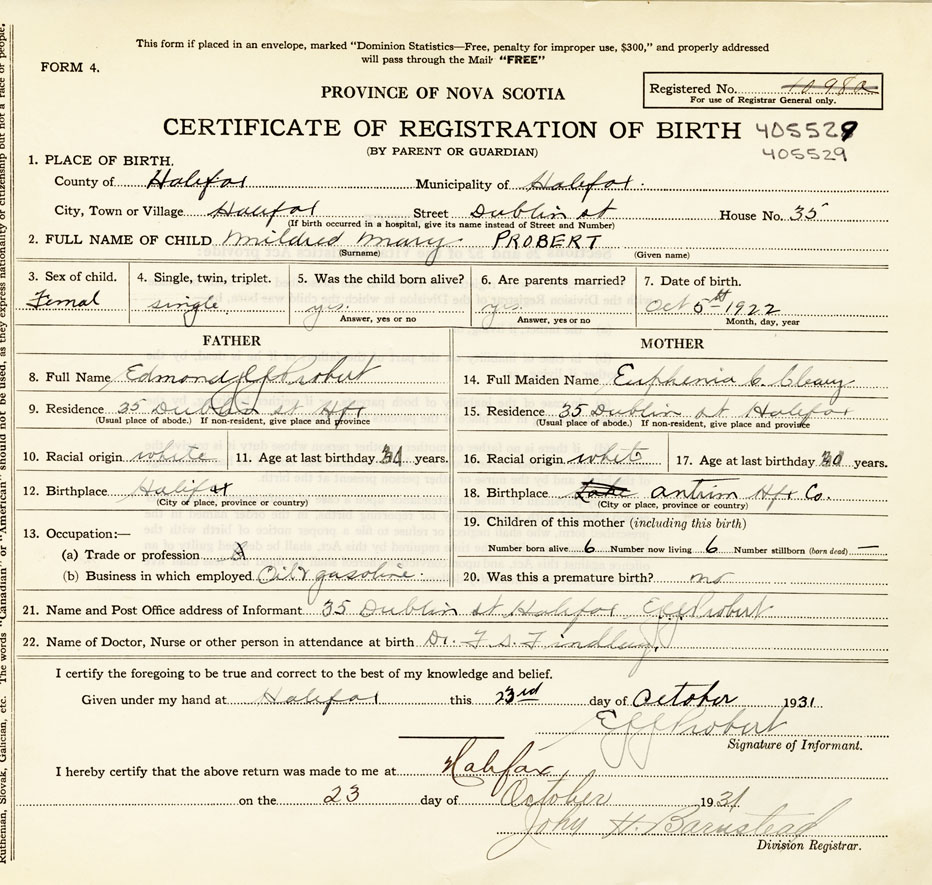 This form if placed in an envelope, marked "Dominion Statistics—Free, penalty for improper use, $300," and properly addressed
will pass through the Mail "FREE"
FORM 4.
Registered No. 10980
For use of Registrar General only.
PROVINCE OF NOVA SCOTIA
CERTIFICATE OF REGISTRATION OF BIRTH 405529
(BY PARENT OR GUARDIAN) 405529
1. PLACE OF BIRTH.
County of Halifax Municipality of Halifax.
City, Town or Village Halifax Street Dublin st House No. 35
(If birth occurred in a hospital, give its name instead of Street and Number)
2. FULL NAME OF CHILD Mildred Mary PROBERT
(Surname) (Given name)
3. Sex of child. 4. Single, twin, triplet. 5. Was the child born alive? 6. Are parents married? 7. Date of birth.
Femal single yes. yes. Oct 5th 1922
Answer, yes or no Answer, yes or no Month, day, year
FATHER MOTHER
8. Full Name Edmond Probert 14. Full Maiden Name Euphenia C. Cleary
9. Residence 35 Dublin st Hfx 15. Residence 35 Dublin st Halifax
(Usual place of abode.) If non-resident, give place and province (Usual place of abode.) If non-resident, give place and province
10. Racial origin white 11. Age at last birthday years. 16. Racial origin white 17. Age at last birthday years.
12. Birthplace Halifax 18. Birthplace antrim Hfx Co.
(City or place, province or country) (City or place, province or country)
13. Occupation:— 19. Children of this mother (including this birth)
(a) Trade or profession Number born alive 6 Number now living 6 Number stillborn (born dead) —
(b) Business in which employed Oil & gasoline. 20. Was this a premature birth? no
21. Name and Post Office address of Informant 35 Dublin st Halifax Probert
22. Name of Doctor, Nurse or other person in attendance at birth Dr. F. S. Findlay.
I certify the foregoing to be true and correct to the best of my knowledge and belief.
Given under my hand at Halifax this 23rd day of October 1931
Probert
Signature of Informant.
I hereby certify that the above return was made to me at Halifax
on the 23 day of October 1931
John H. Barnstead
Division Registrar.
Ruthenian, Slovak, Galician, etc. The words "Canadian" or "American" should not be used, as they express nationality or citizenship but not a race or people.